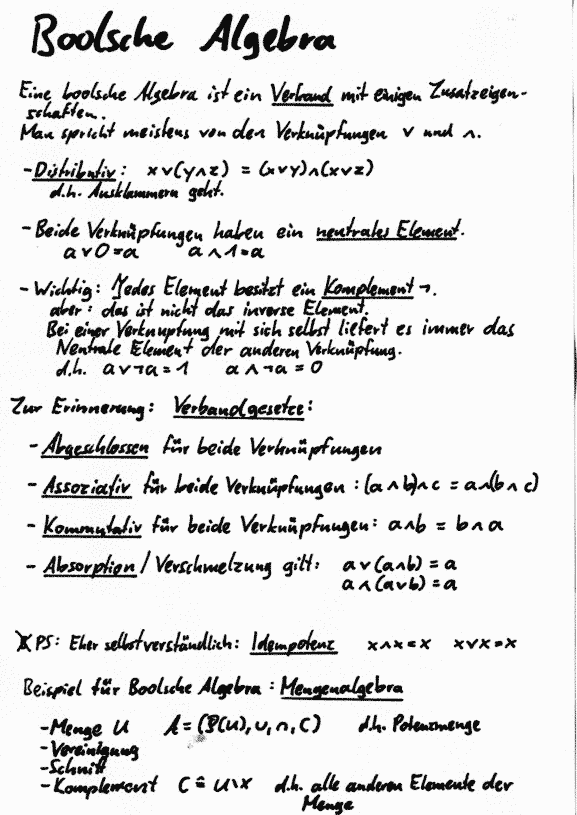 Boolsche Algebra
Eine boolsche Algebra ist ein Verband mit einigen Zusatzeigen-
schaften.
Man spricht meistens von den Verknüpfungen ∨ und ∧.
- Distributiv: x∨(y∧z) = (x∨y)∧(x∨z)
d.h. Ausklammern geht.
- Beide Verknüpfungen haben ein neutrales Element.
a∨0=a a∧1=a
- Wichtig: Jedes Element besitzt ein Komplement ¬.
aber: das ist nicht das inverse Element.
Bei einer Verknüpfung mit sich selbst liefert es immer das
Neutrale Element der anderen Verknüpfung.
d.h. a∨¬a=1 a∧¬a=0
Zur Erinnerung: Verbandgesetze:
- Abgeschlossen für beide Verknüpfungen
- Assoziativ für beide Verknüpfungen: (a∧b)∧c = a∧(b∧c)
- Kommutativ für beide Verknüpfungen: a∧b = b∧a
- Absorption / Verschmelzung gilt: a∨(a∧b) = a
a∧(a∨b) = a
PS: Eher selbstverständlich: Idempotenz x∧x=x x∨x=x
Beispiel für Boolsche Algebra: Mengenalgebra
- Menge U A=(P(U),∪,∩,C) d.h. Potenzmenge
- Vereinigung
- Schnitt
- Komplement C ≙ U\X d.h. alle anderen Elemente der
Menge